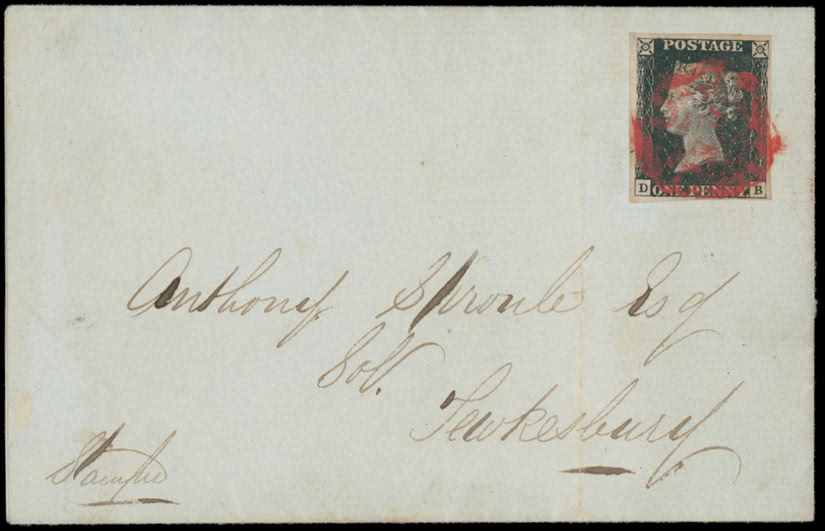 POSTAGE
D ONE PENNY B
Anthony Sproule Esq
Solr.
Tewkesbury